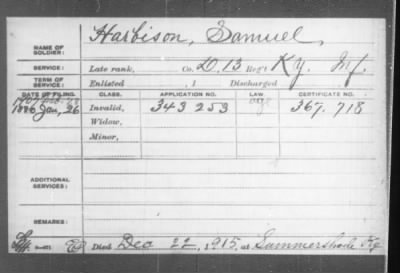 NAME OF SOLDIER: Harbison, Samuel,
SERVICE: Late rank, Co. D, 13 Reg't Ky. Inf.
TERM OF SERVICE: Enlisted , 1 Discharged
DATE OF FILING. CLASS. APPLICATION NO. LAW. CERTIFICATE NO.
1886 Jan, 26 Invalid, 343 253 367.718
Widow,
Minor,
ADDITIONAL SERVICES:
REMARKS:
Died Dec 22, 1915, at Summershade Ky